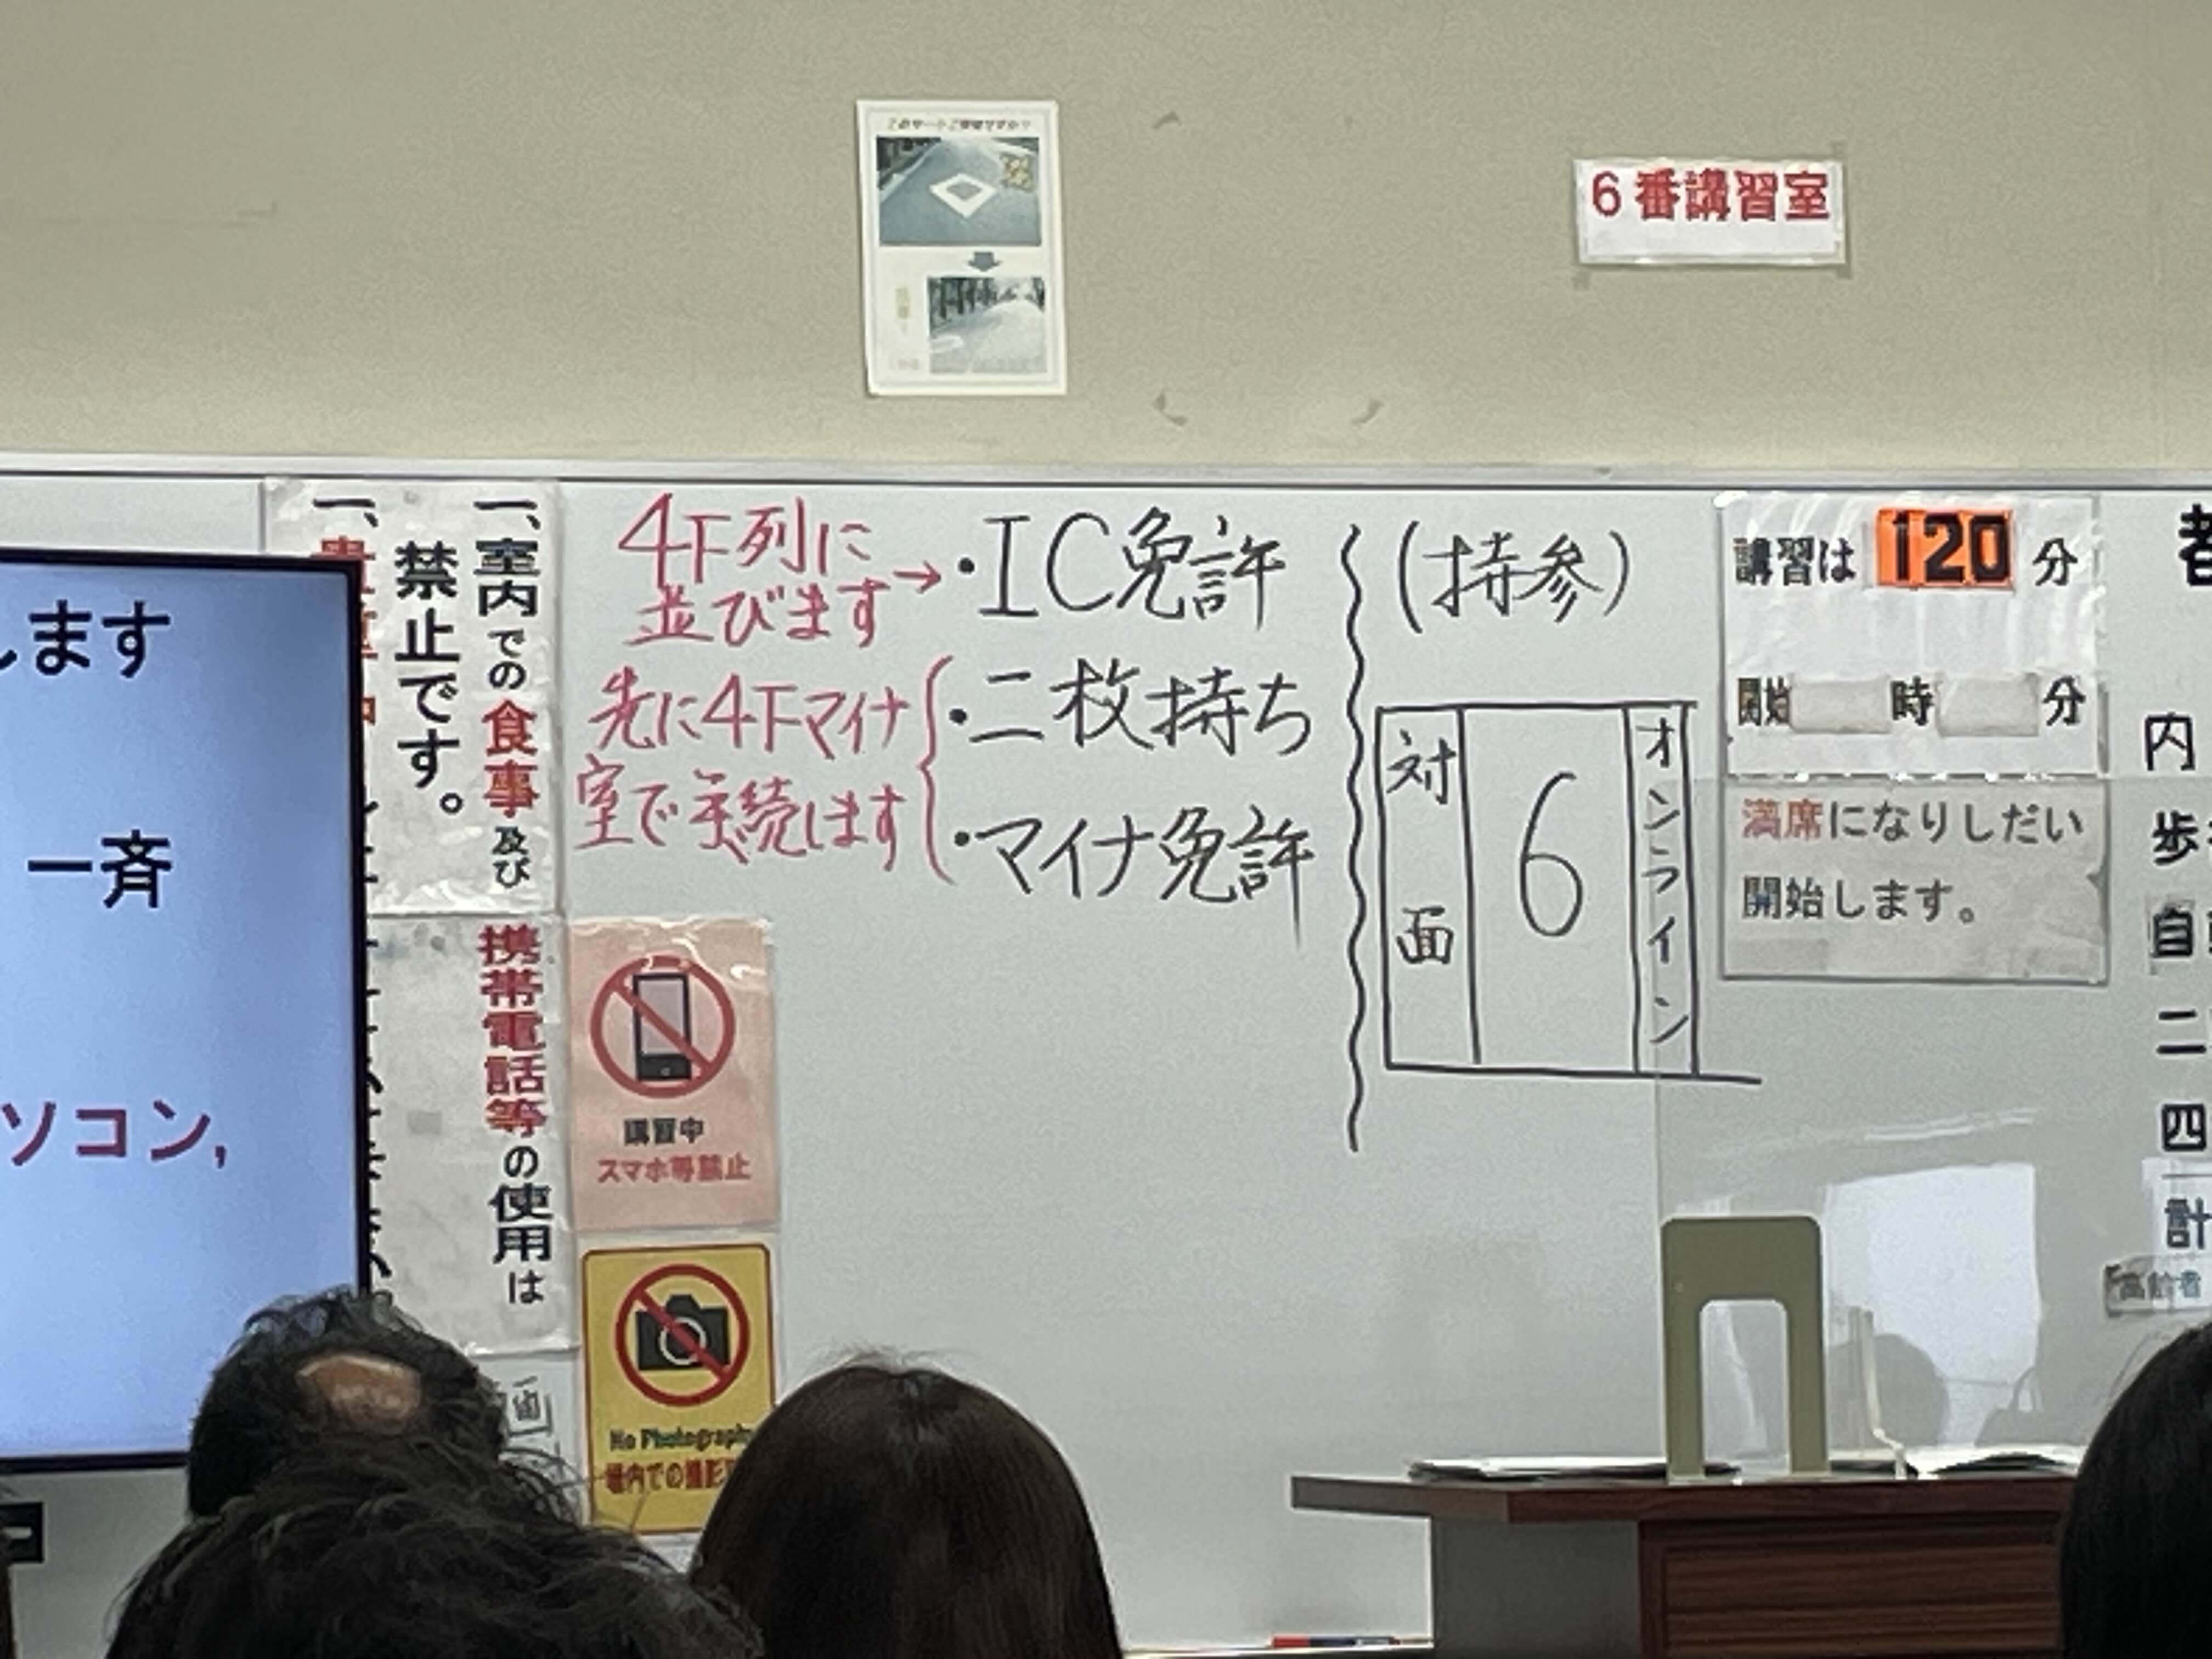 6番講習室
します
一斉
ソコン,
一、室内での食事及び
携帯電話等の使用は
禁止です。
4下列に
並びます→
・IC免許
(持参)
先に4下マイナ
室で手続します
・二枚持ち
・マイナ免許
対面
6
オンライン
講習は 120 分
開始 時 分
満席になりしだい
開始します。
講習中
スマホ等禁止
No Photography
場内での撮影
内
歩
自
二
四
計
高齢者